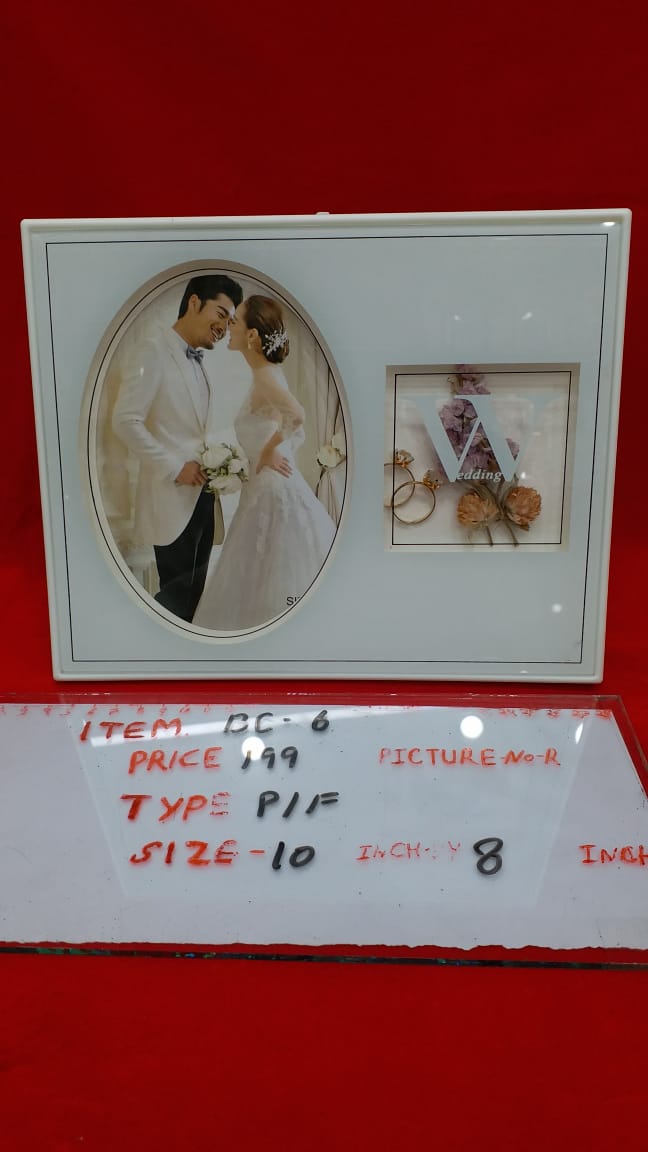 W
edding
ITEM. BC-6
PRICE 199 PICTURE-NO-R
TYPE P/F
SIZE-10 INCH-BY 8 INCH